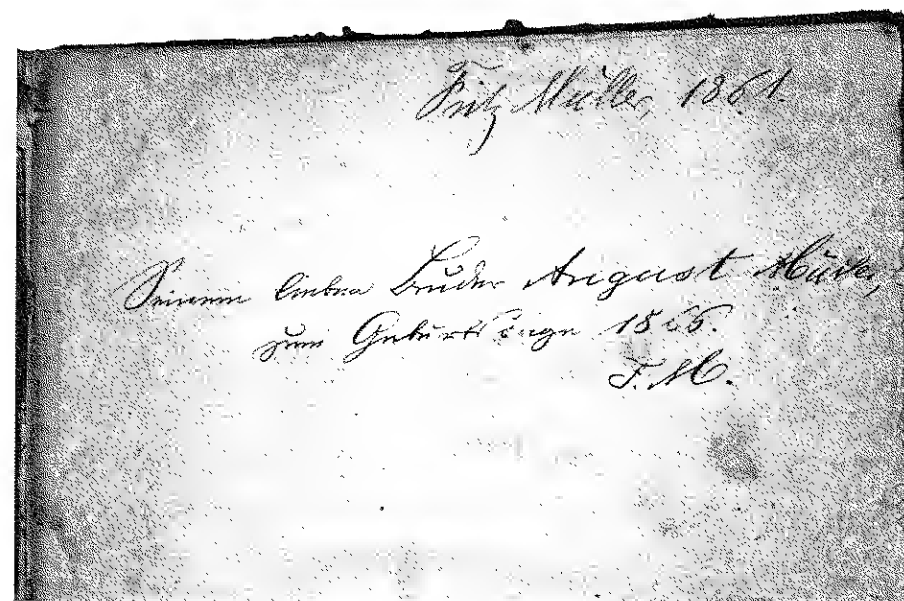 Fritz Müller, 1861.
Seinem lieben Bruder August Müller,
zum Geburtstage 1866.
F. M.